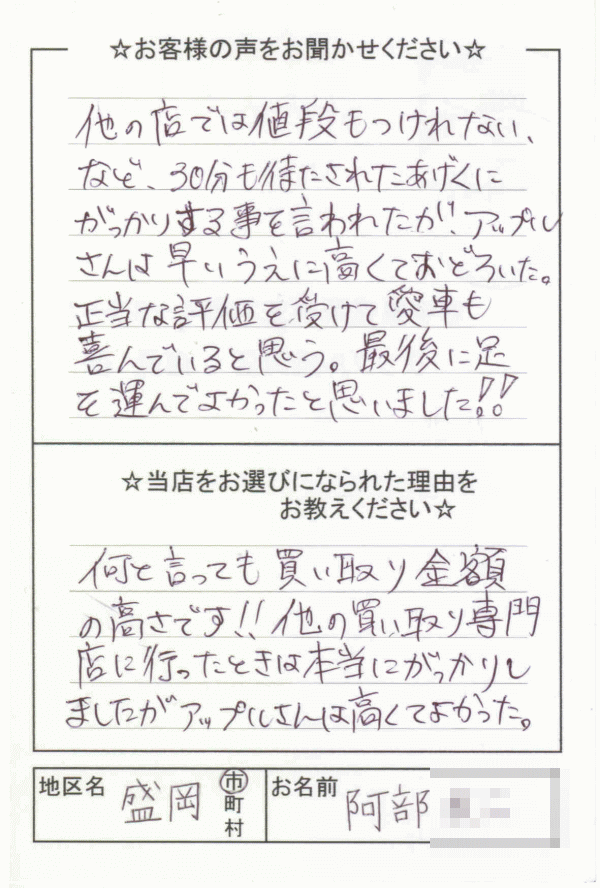 ☆お客様の声をお聞かせください☆
他の店では値段もつけれない、
など、30分も待たされたあげくに
がっかりする事を言われたが、アップル
さんは早いうえに高くておどろいた。
正当な評価を受けて愛車も
喜んでいると思う。最後に足
を運んでよかったと思いました!!
☆当店をお選びになられた理由を
お教えください☆
何と言っても買い取り金額
の高さです!!他の買い取り専門
店に行ったときは本当にがっかりし
ましたがアップルさんは高くてよかった。
地区名 盛岡 市町村 お名前 阿部